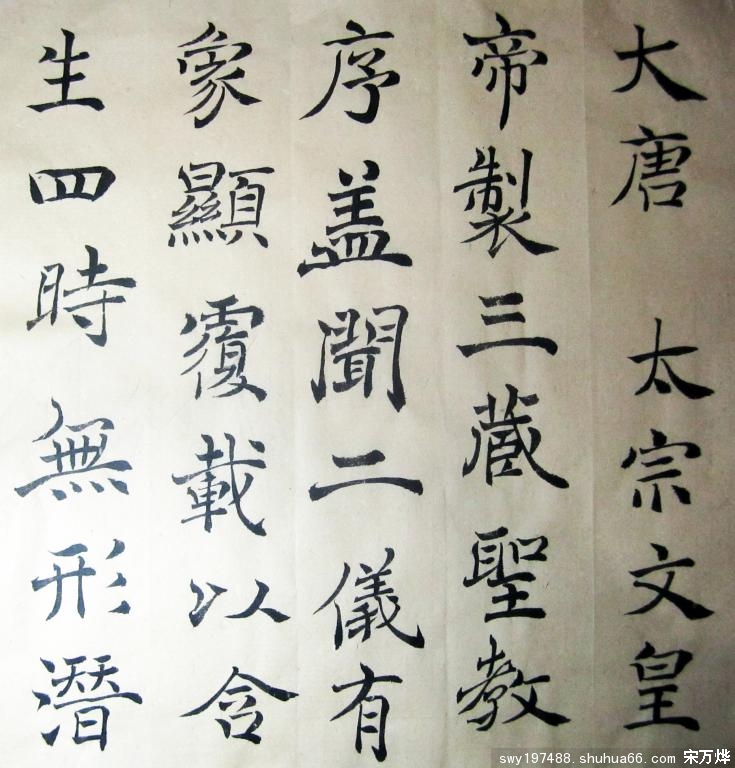 大唐 太宗文皇
帝製三藏聖教
序盖聞二儀有
象顯覆載以含
生四時無形潛
swy197488.shuhua66.com 宋万烨